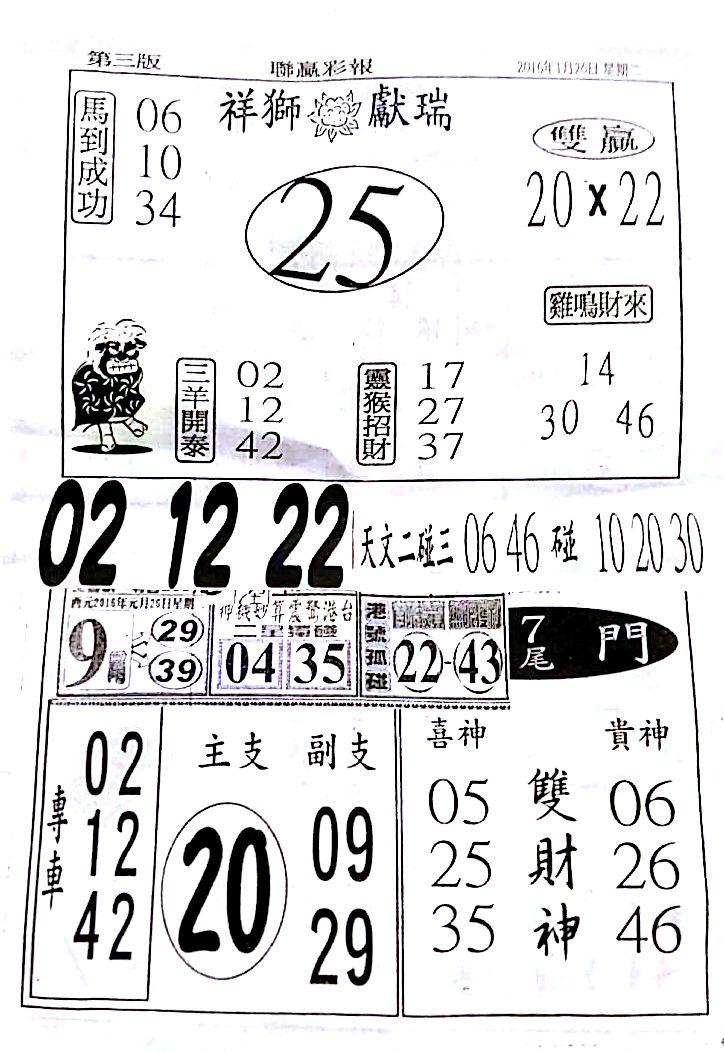 第三版 聯贏彩報 2016年1月26日 星期二
祥獅 獻瑞
馬到成功
06
10
34
25
雙贏
20 x 22
雞鳴財來
14
30 46
三羊開泰
02
12
42
靈猴招財
17
27
37
02 12 22 天文二碰三 06 46 碰 10 20 30
西元2016年元月26日星期
9 29
39
神錢妙算震驚港台
04 35
港號孤碰
22-43
7尾 門
專車
02
12
42
主支 副支
20
09
29
喜神 貴神
05 雙 06
25 財 26
35 神 46